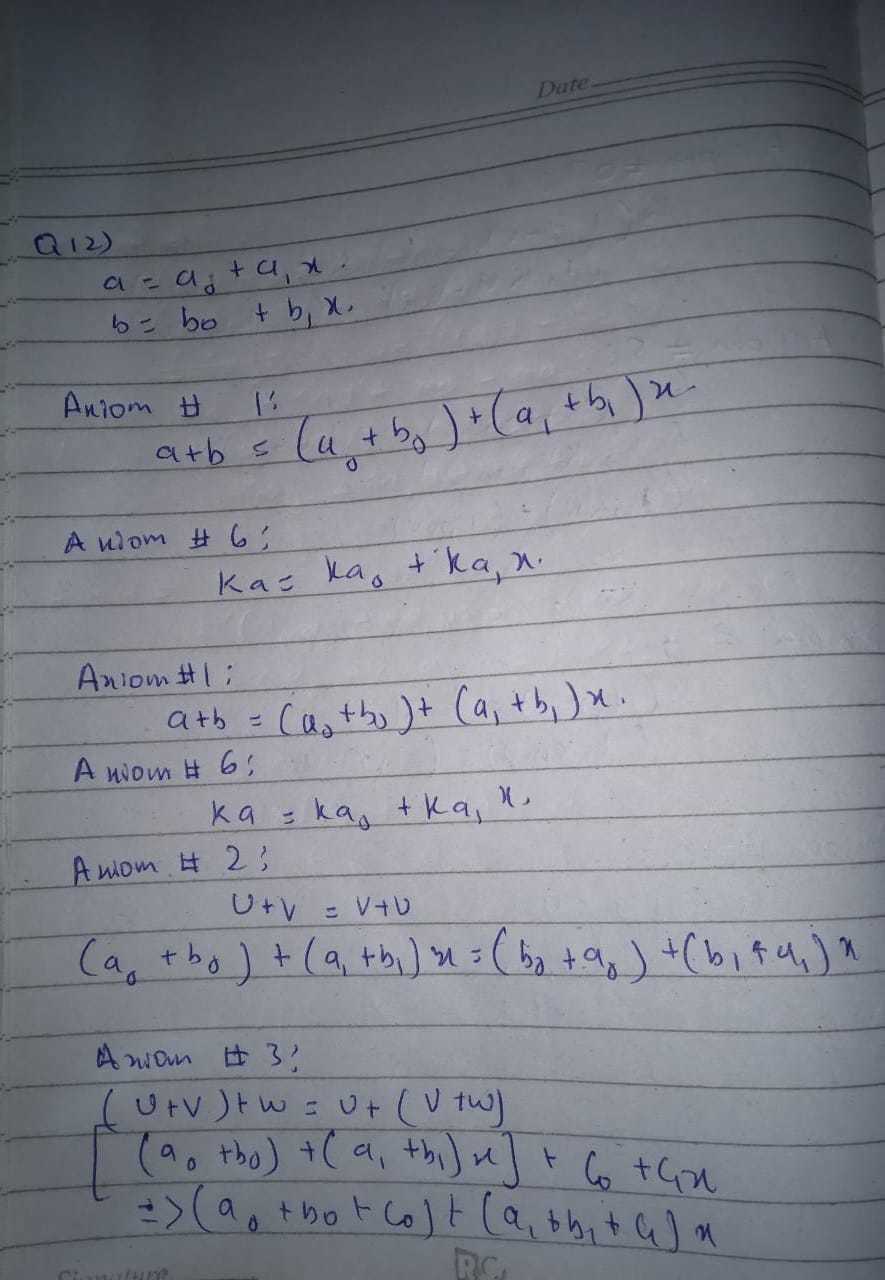 Date
Q12)
a = a₀ + a₁x.
b = b₀ + b₁x.
Axiom # 1:
a+b = (a₀ + b₀) + (a₁ + b₁)x
Axiom # 6:
Ka = Ka₀ + Ka₁x.
Axiom #1:
a+b = (a₀ + b₀) + (a₁ + b₁)x.
Axiom # 6:
Ka = Ka₀ + Ka₁x.
Axiom # 2:
U+V = V+U
(a₀ + b₀) + (a₁ + b₁)x = (b₀ + a₀) + (b₁ + a₁)x
Axiom # 3:
(U+V)+W = U+(V+W)
[(a₀ + b₀) + (a₁ + b₁)x] + C₀ + C₁x
=> (a₀ + b₀ + C₀) + (a₁ + b₁ + C₁)x
Signature
RC